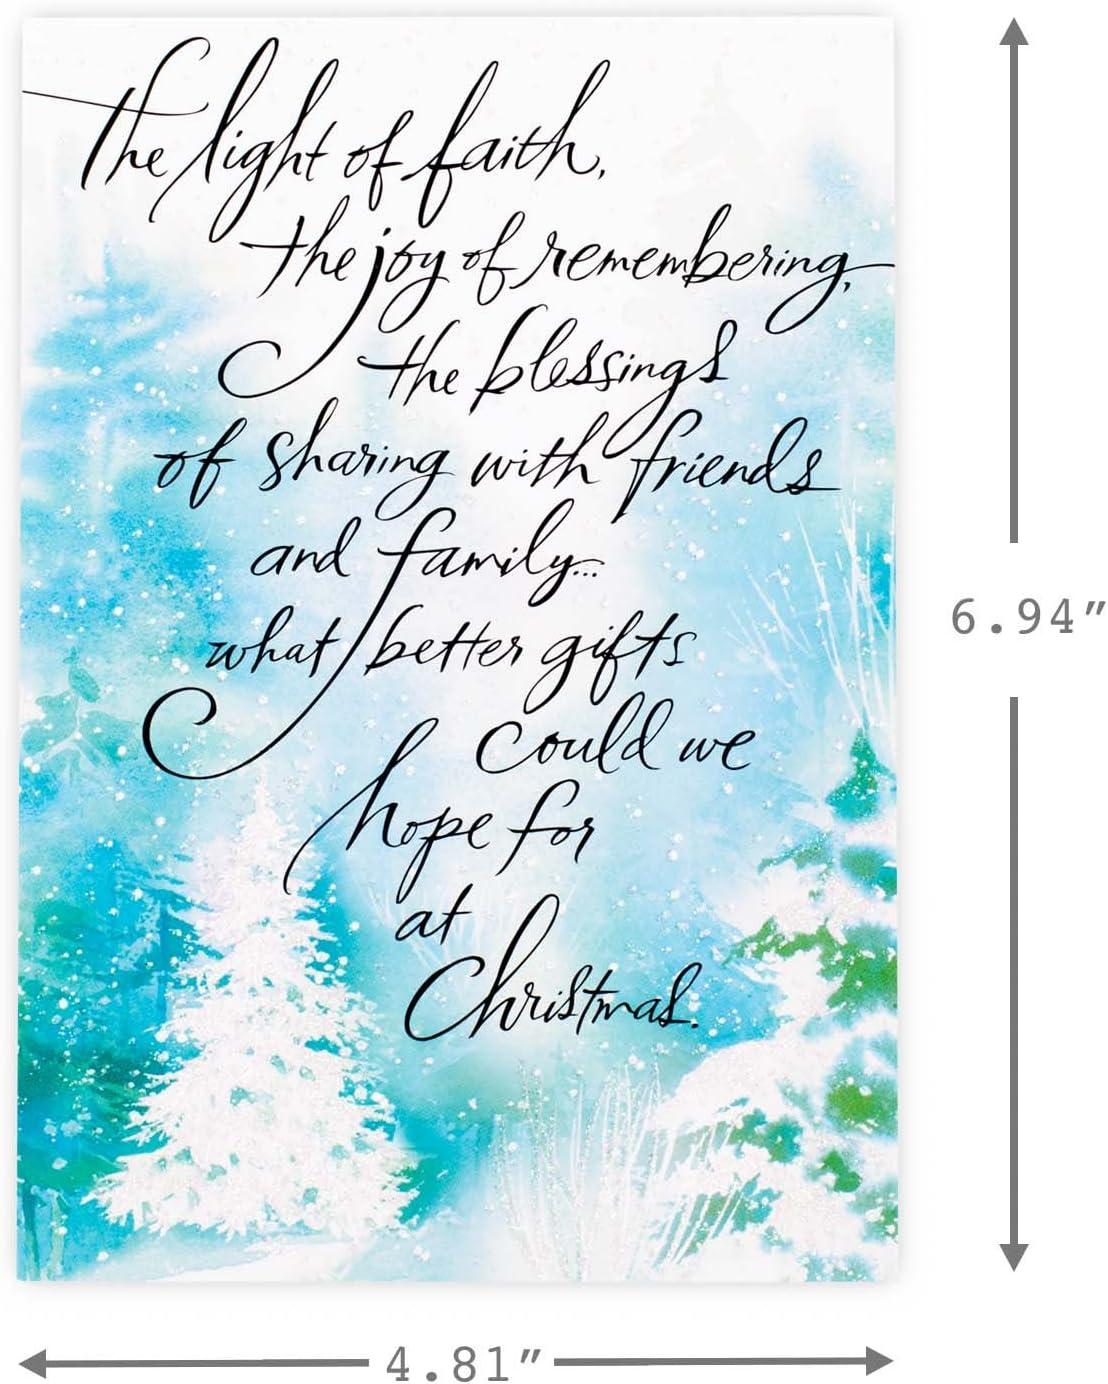 The light of faith,
the joy of remembering,
the blessings
of sharing with friends
and family...
what better gifts
could we
hope for
at
Christmas.
6.94"
4.81"